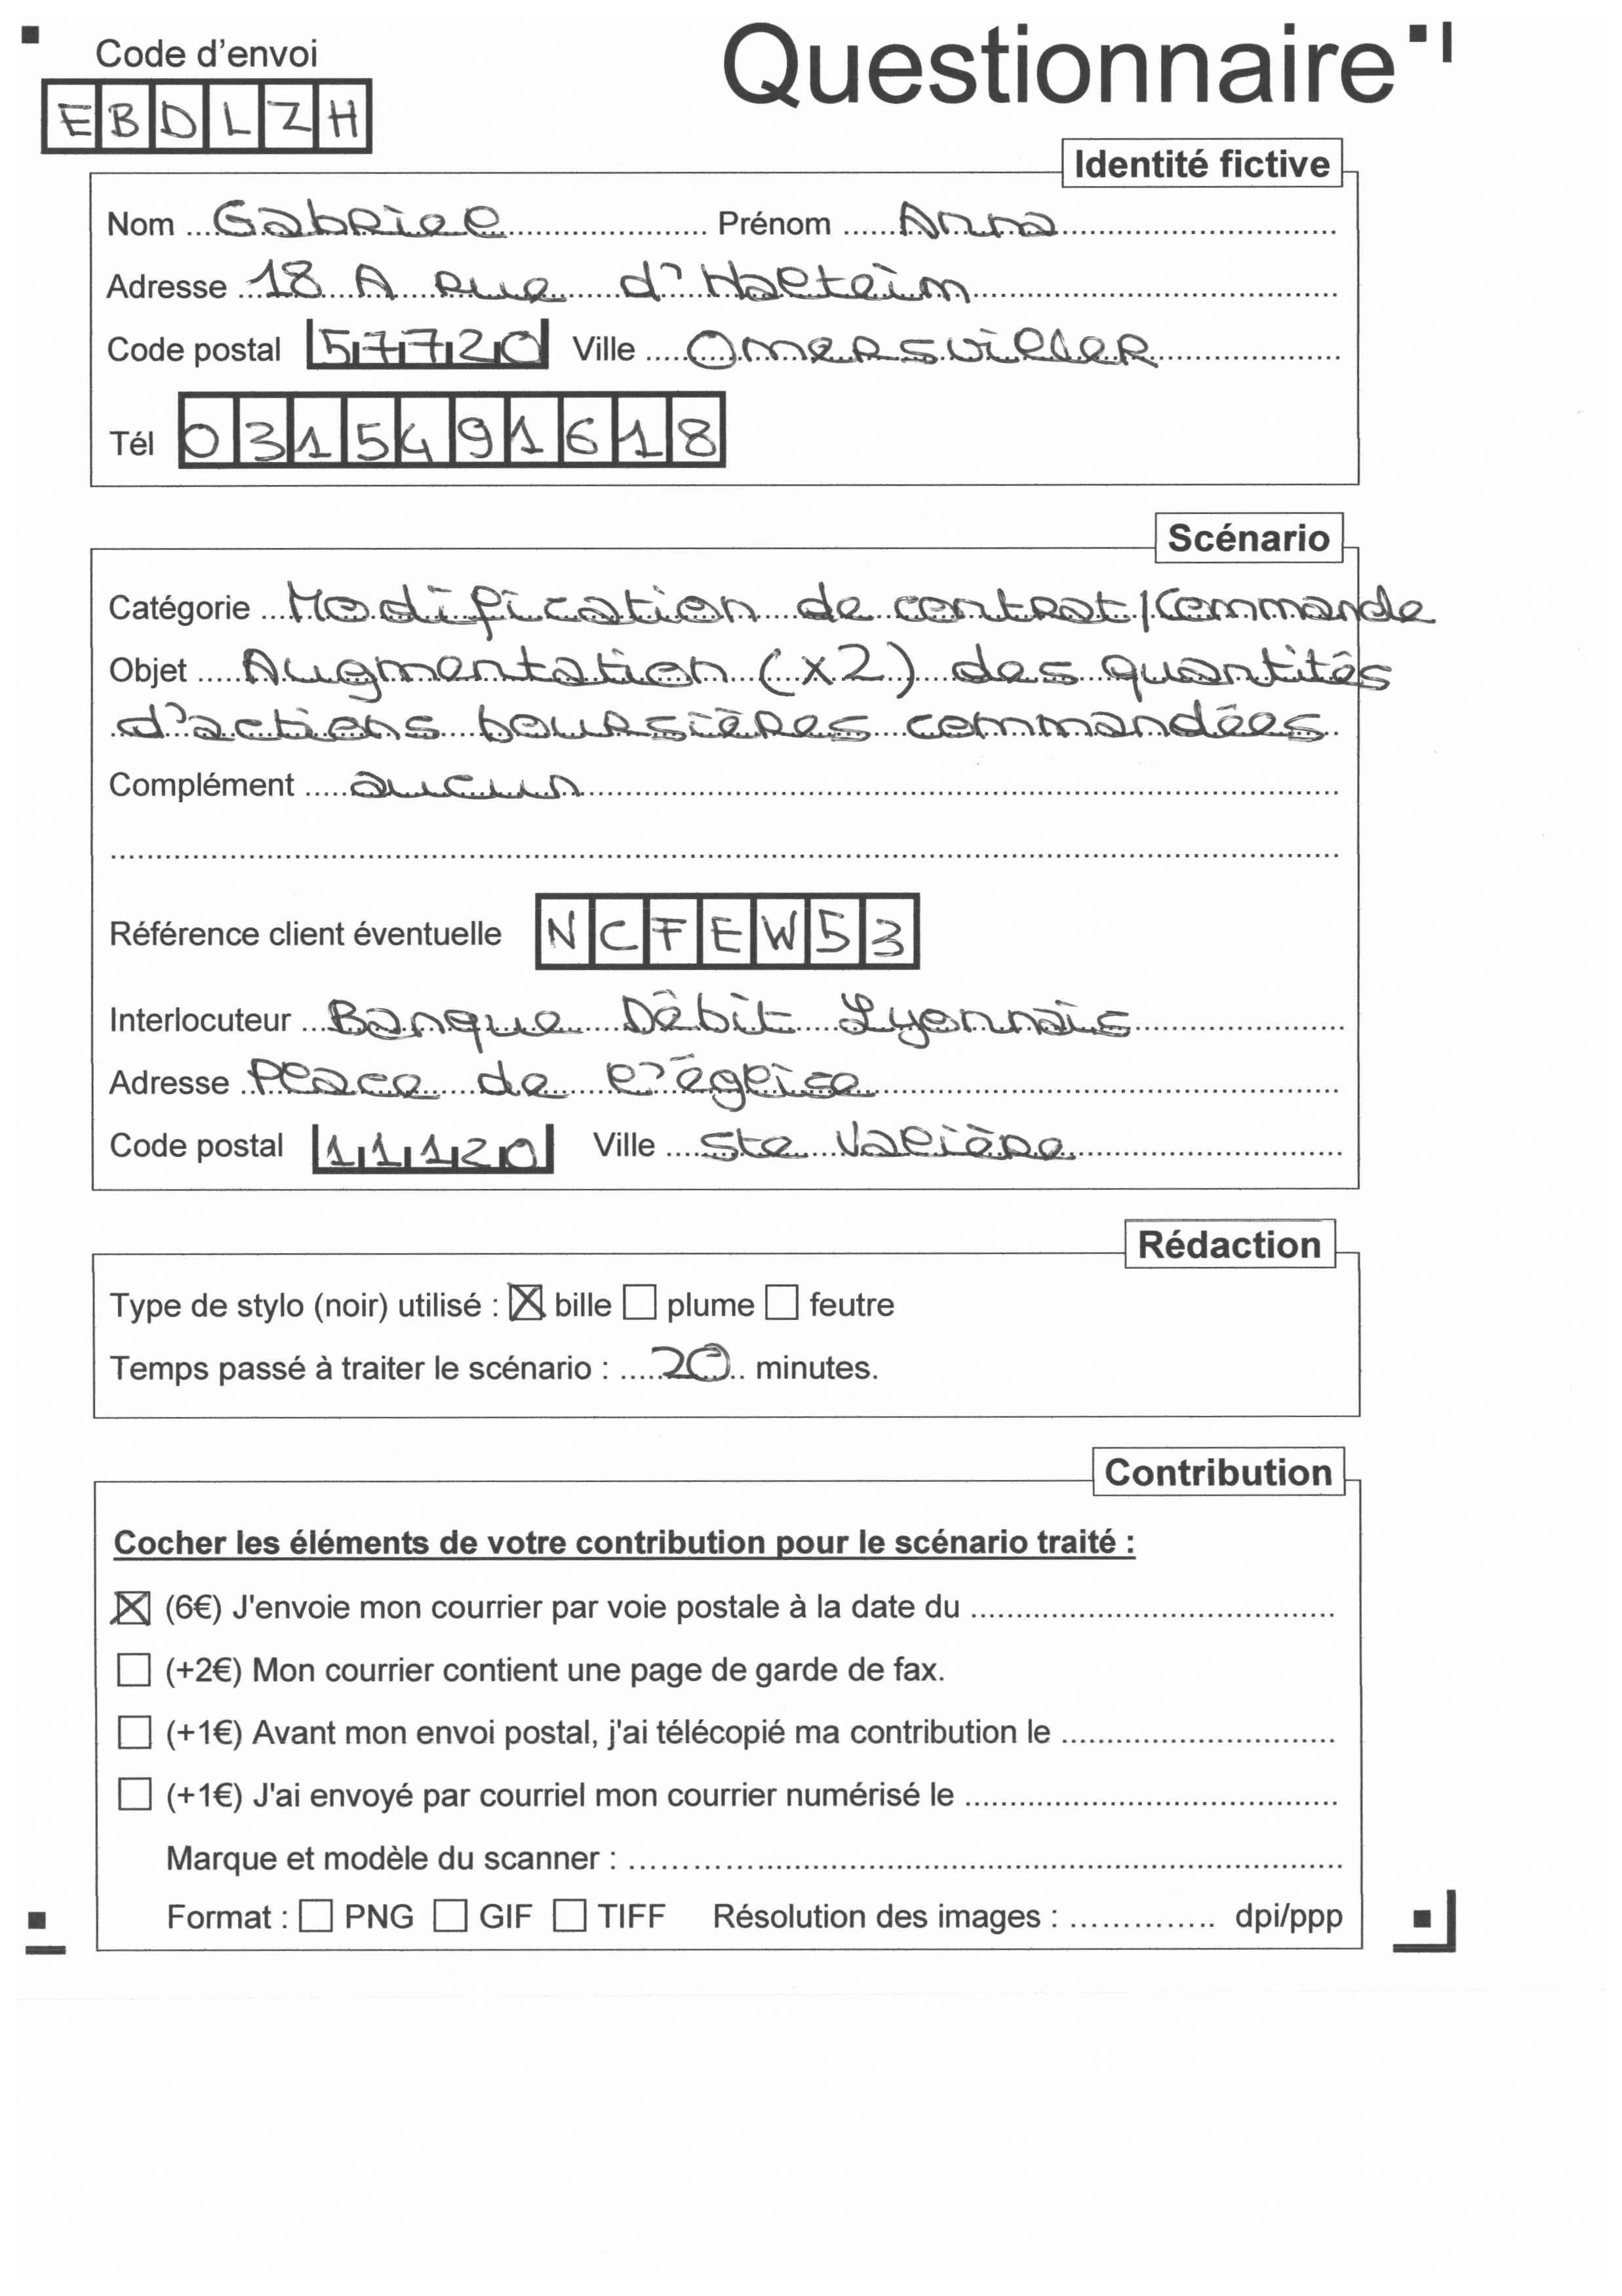 Code d'envoi
EBDLZH
Questionnaire
Identité fictive
Nom Gabriel Prénom Anna
Adresse 18 A rue d'Halteim
Code postal 57720 Ville Omersviller
Tél 0315491618
Scénario
Catégorie Modification de contrat/Commande
Objet Augmentation (x2) des quantités
d'actions boursières commandées
Complément aucun
Référence client éventuelle NCFEW53
Interlocuteur Banque Débit Lyonnais
Adresse Place de l'église
Code postal 11120 Ville Ste Valière
Rédaction
Type de stylo (noir) utilisé : ☒ bille ☐ plume ☐ feutre
Temps passé à traiter le scénario : 20 minutes.
Contribution
Cocher les éléments de votre contribution pour le scénario traité :
☒ (6€) J'envoie mon courrier par voie postale à la date du
☐ (+2€) Mon courrier contient une page de garde de fax.
☐ (+1€) Avant mon envoi postal, j'ai télécopié ma contribution le
☐ (+1€) J'ai envoyé par courriel mon courrier numérisé le
Marque et modèle du scanner :
Format : ☐ PNG ☐ GIF ☐ TIFF Résolution des images : dpi/ppp